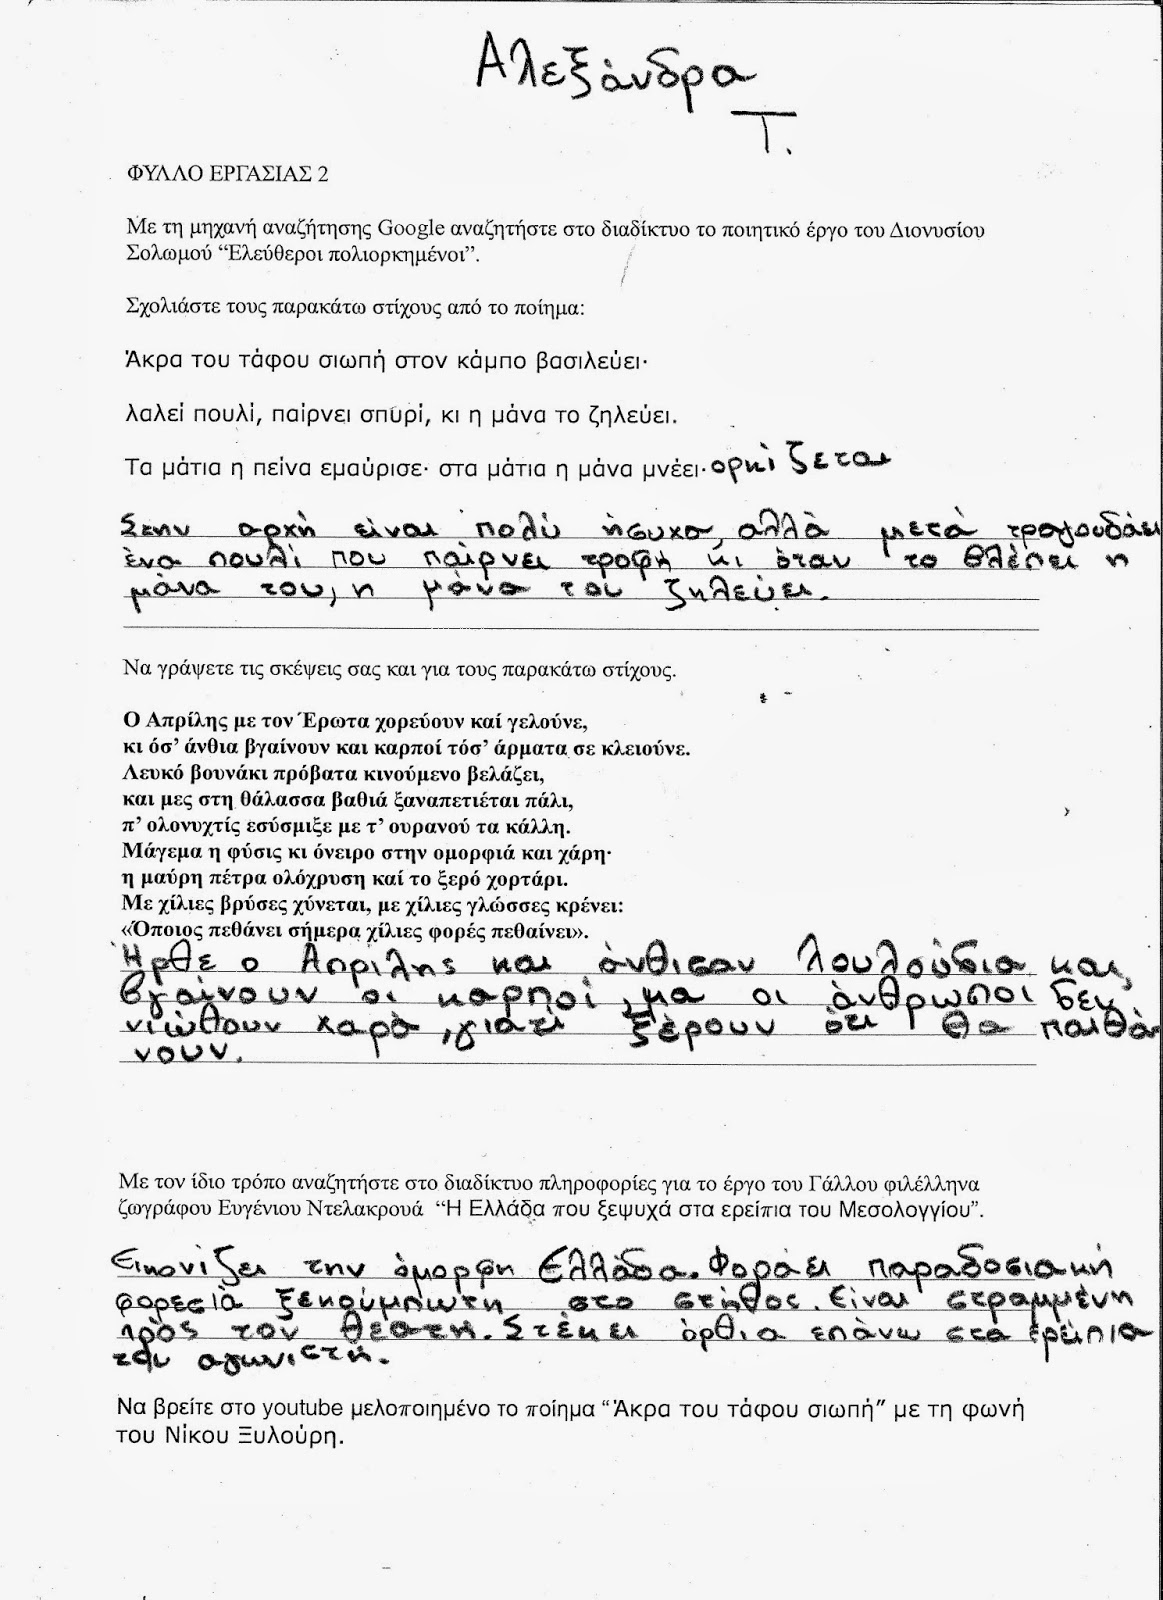 Αλεξάνδρα
Τ.
ΦΥΛΛΟ ΕΡΓΑΣΙΑΣ 2
Με τη μηχανή αναζήτησης Google αναζητήστε στο διαδίκτυο το ποιητικό έργο του Διονυσίου
Σολωμού “Ελεύθεροι πολιορκημένοι”.
Σχολιάστε τους παρακάτω στίχους από το ποίημα:
Άκρα του τάφου σιωπή στον κάμπο βασιλεύει·
λαλεί πουλί, παίρνει σπυρί, κι η μάνα το ζηλεύει.
Τα μάτια η πείνα εμαύρισε· στα μάτια η μάνα μνέει· ορκίζεται
Στην αρχή είναι πολύ ήσυχα, αλλά μετά τραγουδάει
ένα πουλί που παίρνει τροφή κι όταν το βλέπει η
μάνα του, η μάνα του ζηλεύει.
Να γράψετε τις σκέψεις σας και για τους παρακάτω στίχους.
Ο Απρίλης με τον Έρωτα χορεύουν καί γελούνε,
κι όσ’ άνθια βγαίνουν και καρποί τόσ’ άρματα σε κλειούνε.
Λευκό βουνάκι πρόβατα κινούμενο βελάζει,
και μες στη θάλασσα βαθιά ξαναπετιέται πάλι,
π’ ολονυχτίς εσύσμιξε με τ’ ουρανού τα κάλλη.
Μάγεμα η φύσις κι όνειρο στην ομορφιά και χάρη·
η μαύρη πέτρα ολόχρυση καί το ξερό χορτάρι.
Με χίλιες βρύσες χύνεται, με χίλιες γλώσσες κρένει:
«Όποιος πεθάνει σήμερα χίλιες φορές πεθαίνει».
Ήρθε ο Απρίλης και άνθισαν λουλούδια και
βγαίνουν οι καρποί, μα οι άνθρωποι δεν
νιώθουν χαρά, γιατί ξέρουν ότι θα παιθά
νουν.
Με τον ίδιο τρόπο αναζητήστε στο διαδίκτυο πληροφορίες για το έργο του Γάλλου φιλέλληνα
ζωγράφου Ευγένιου Ντελακρουά “Η Ελλάδα που ξεψυχά στα ερείπια του Μεσολογγίου”.
Εικονίζει την όμορφη Ελλάδα. Φοράει παραδοσιακή
φορεσιά ξεκούμπωτη στο στήθος. Είναι στραμμένη
πρός τον θεατή. Στέκει όρθια επάνω στα ερείπια
του αγωνιστή.
Να βρείτε στο youtube μελοποιημένο το ποίημα “Άκρα του τάφου σιωπή” με τη φωνή
του Νίκου Ξυλούρη.